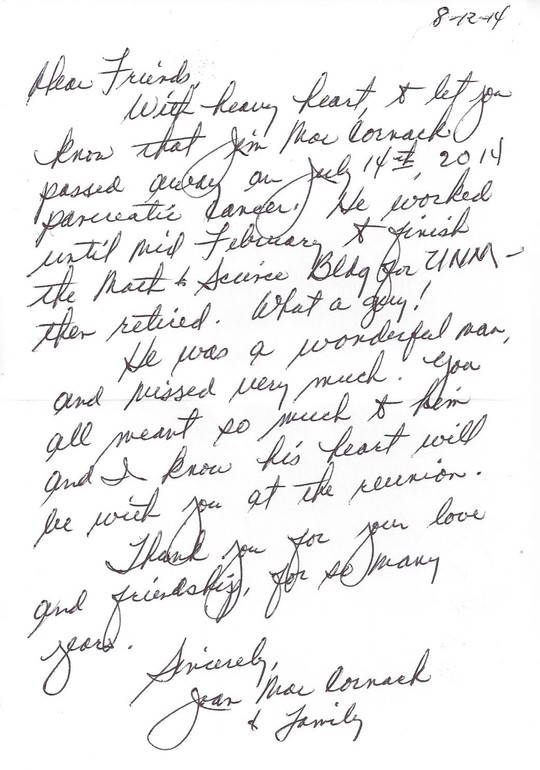 8-12-14
Dear Friends,
With heavy heart, to let you
know that Jim Mac Cornack
passed away on July 14th, 2014
pancreatic cancer. He worked
until mid February to finish
the Math & Science Bldg for UNM -
then retired. What a guy!
He was a wonderful man,
and missed very much. You
all meant so much to him
and I know his heart will
be with you at the reunion.
Thank you for your love
and friendship, for so many
years.
Sincerely,
Joan Mac Cornack
& Family